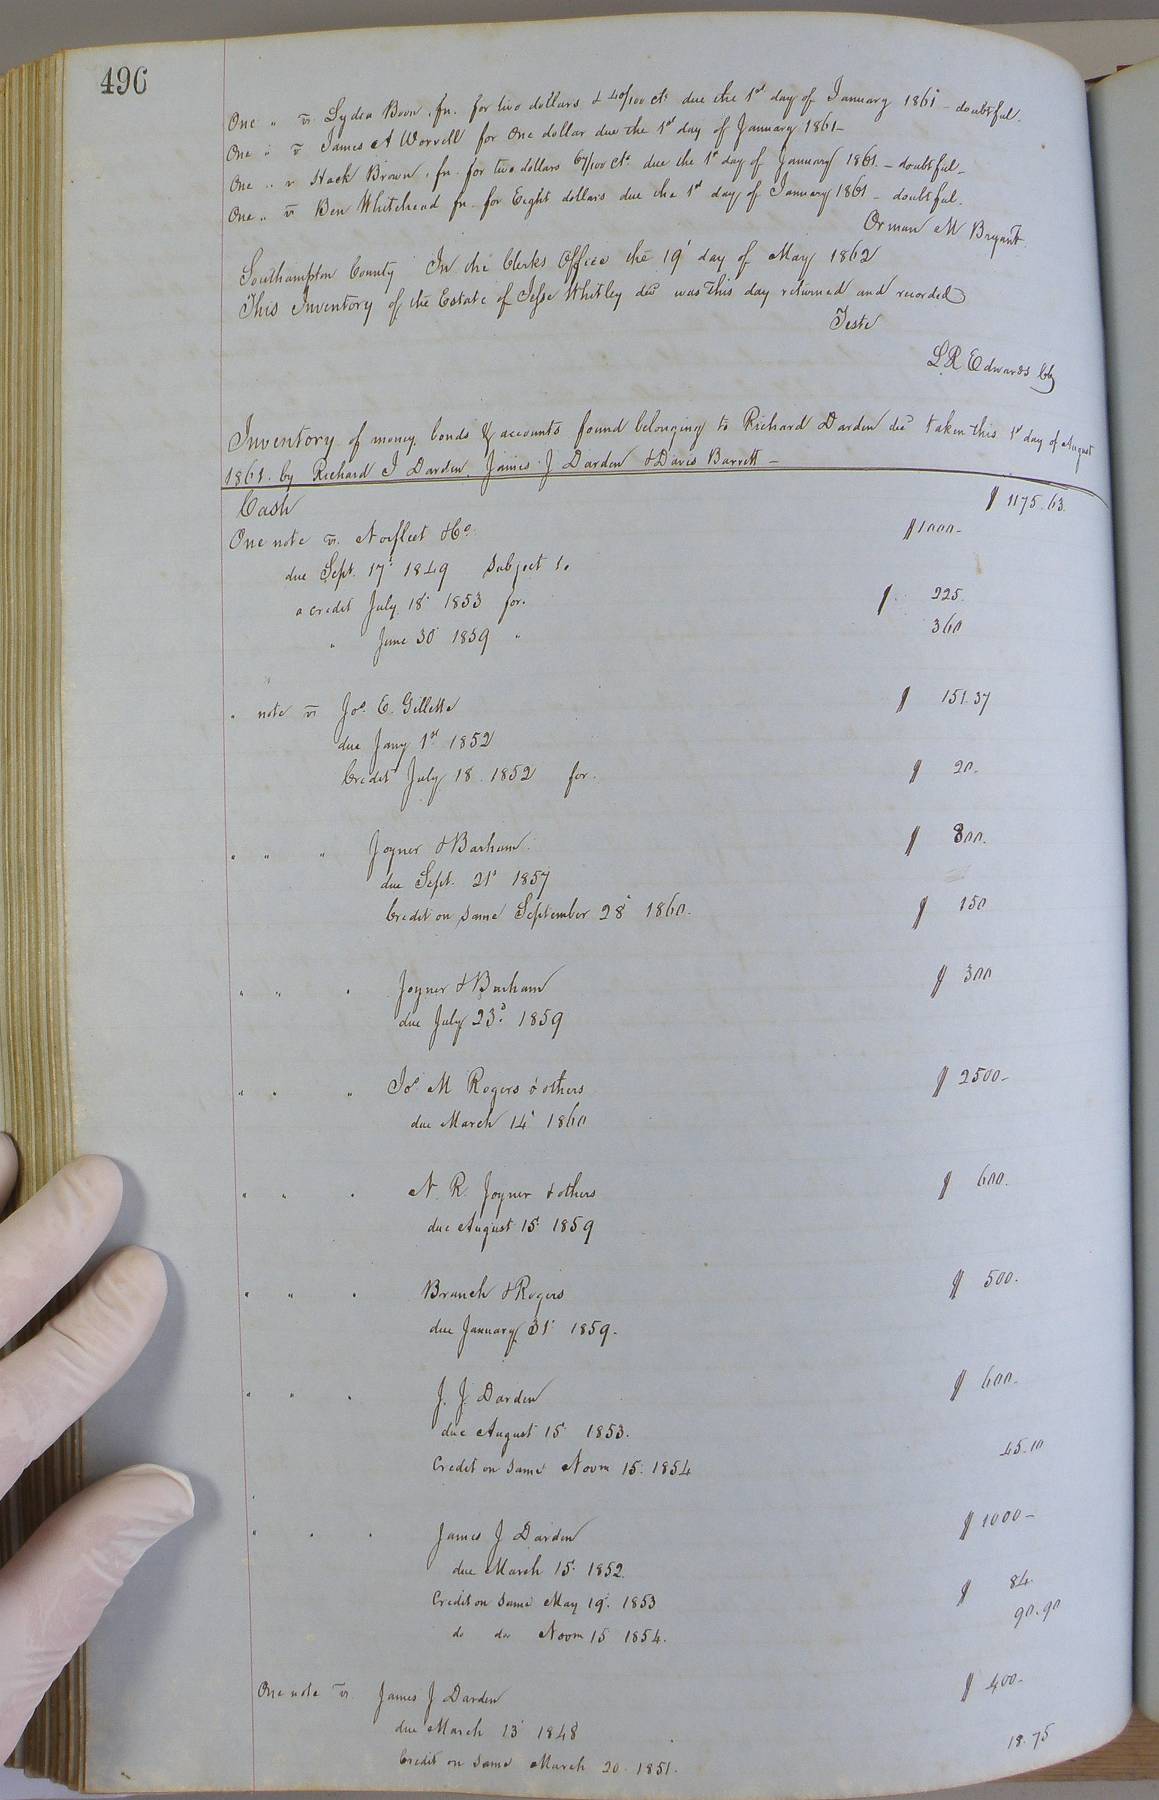 490
One " vs Lydia Boon, fn. for two dollars & 40/100 cts due the 1st day of January 1861 - doubtful.
One " vs James A Worrell for One dollar due the 1st day of January 1861-
One " v Hack Brown, fn. for two dollars 67/100 cts due the 1st day of January 1861. - doubtful-
One " vs Ben Whitehead fn for Eight dollars due the 1st day of January 1861 - doubtful.
Orman M Bryant.
Southampton County In the Clerks Office the 19' day of May 1862
This Inventory of the Estate of Jesse Whitley decd was this day returned and recorded
Teste
L R Edwards Clk
Inventory of money, bonds & accounts found belonging to Richard Darden decd taken this 1st day of August
1861. by Richard J Darden, James J Darden & Davis Barrett -
Cash $ 1175.63.
One note vs. Norfleet & Co. $1000-
due Sept. 17' 1849 subject to
a credit July 18' 1853 for. $ 225.
" June 30' 1859 " 360
" note vs Jos. E. Gillette $ 151.37
due Jany 1st 1852
Credit July 18. 1852 for. $ 20.
" " " Joyner & Barham $ 800.
due Sept. 21' 1857
Credit on same September 28' 1860. $ 150
" " " Joyner & Barham $ 300
due July 23d. 1859
" " " Jos M Rogers & others $ 2500-
due March 14' 1860
" " " N. R. Joyner & others $ 600.
due August 15' 1859
" " " Branch & Rogers $ 500.
due January 31' 1859.
" " " J. J. Darden $ 600.
due August 15' 1853.
Credit on same Novm 15. 1854 45.10
" " " James J Darden $ 1000-
due March 15' 1852.
Credit on same May 19'. 1853 $ 84.
do do Novm 15 1854. 90.90
One note vs James J Darden $ 400-
due March 13' 1848
Credit on same March 20. 1851. 18.75